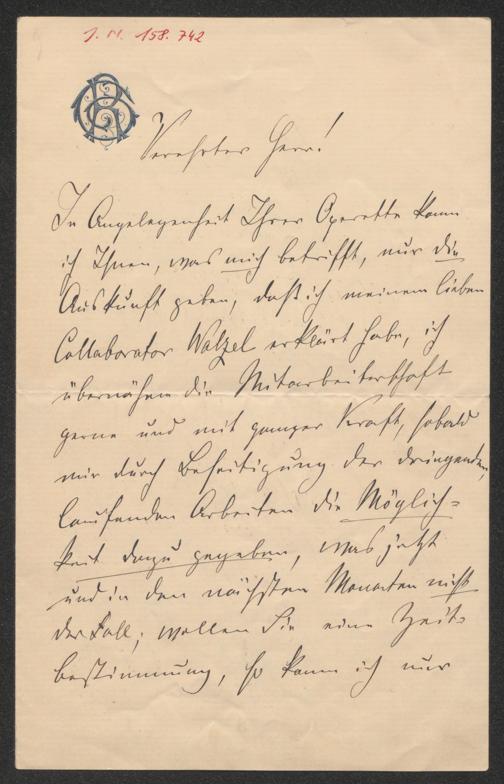 J. N. 158.742
Verehrter Herr!
In Angelegenheit Ihrer Operette kann
ich Ihnen, was mich betrifft, nur die
Auskunft geben, daß ich meinem lieben
Collaborator Walzel erklärt habe, ich
übernähme die Mitarbeiterschaft
gerne und mit ganzer Kraft, sobald
mir durch Beseitigung der dringenden,
laufenden Arbeiten die Möglich-
keit dazu gegeben, was jetzt
und in den nächsten Monaten nicht
der Fall; wollen Sie eine Zeit-
bestimmung, so kann ich nur